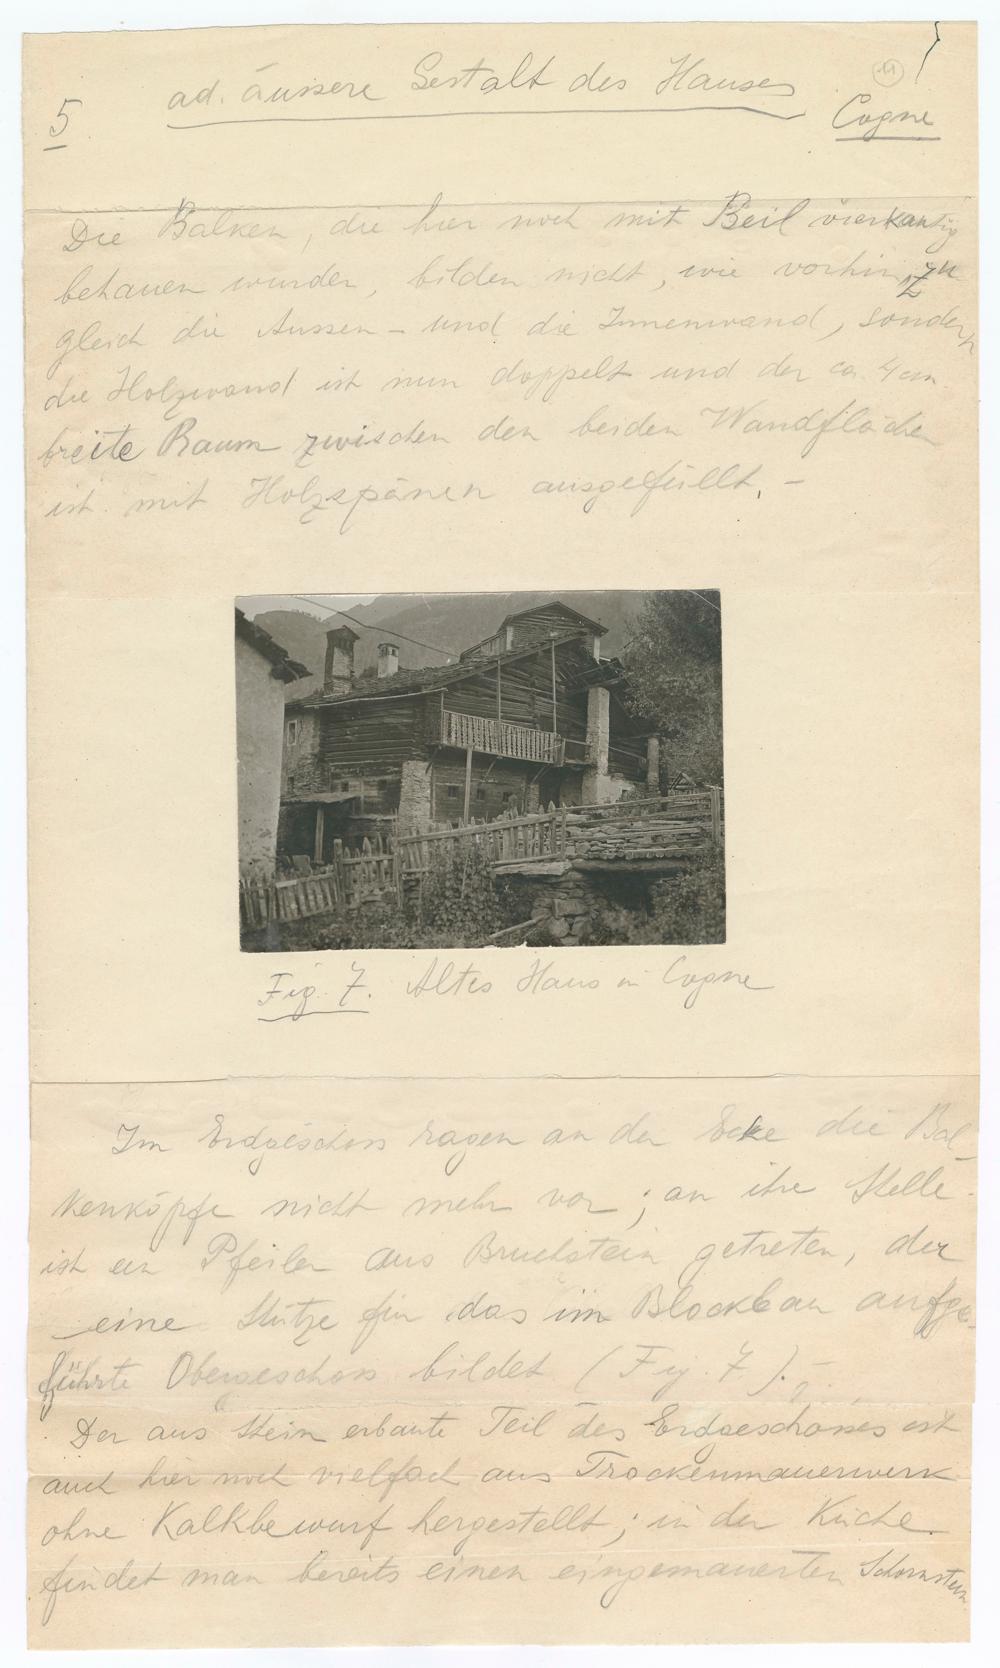 11
5
ad. äussere Gestalt des Hauses
Cogne
Die Balken, die hier noch mit Beil vierkantig
behauen wurden, bilden nicht, wie vorhin, zu-
gleich die Aussen- und die Innenwand, sondern
die Holzwand ist nun doppelt und der ca. 4 cm
breite Raum zwischen den beiden Wandflächen
ist mit Holzspänen ausgefüllt. -
Fig. 7. Altes Haus in Cogne
Im Erdgeschoss ragen an der Ecke die Bal-
kenköpfe nicht mehr vor; an ihre Stelle
ist ein Pfeiler aus Bruchstein getreten, der
eine Stütze für das im Blockbau aufge-
führte Obergeschoss bildet (Fig. 7). -
Der aus Stein erbaute Teil des Erdgeschosses ist
auch hier noch vielfach aus Trockenmauerwerk
ohne Kalkbewurf hergestellt; in der Küche
findet man bereits einen eingemauerten Schornstein